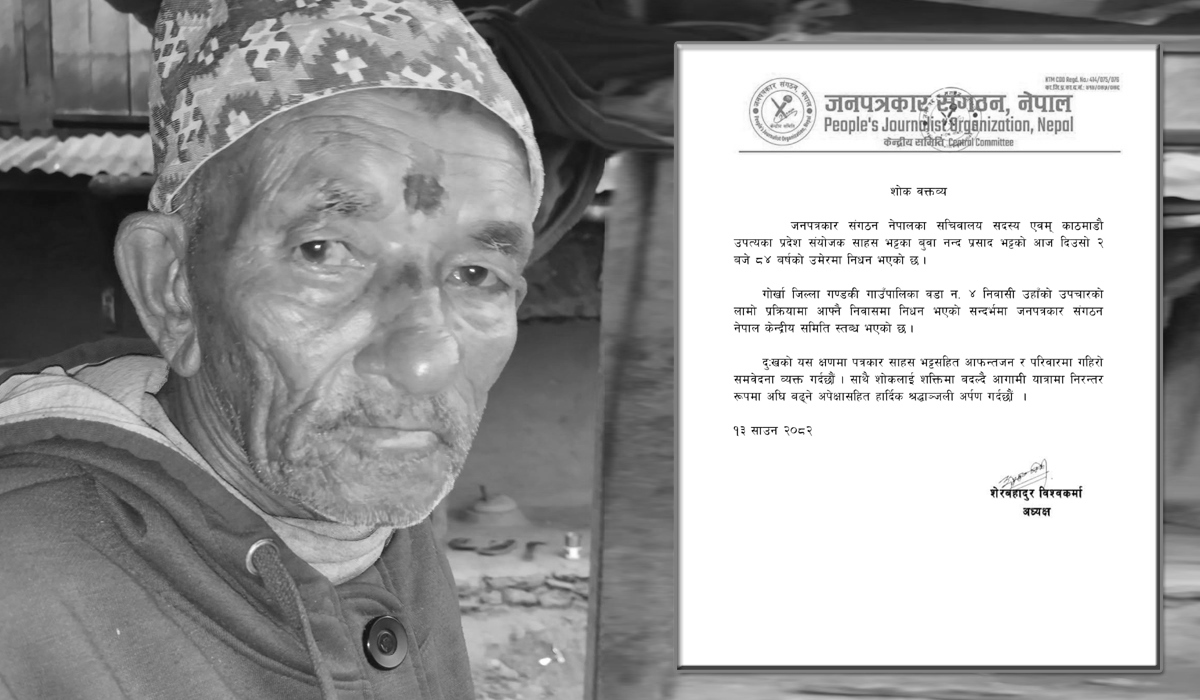 KTM CDO Regd. No.: 414/075/076
जनपत्रकार संगठन, नेपाल
People's Journalist Organization, Nepal
केन्द्रीय समिति Central Committee
शोक वक्तव्य
जनपत्रकार संगठन नेपालका सचिवालय सदस्य एवम् काठमाडौ
उपत्यका प्रदेश संयोजक साहस भट्टका बुवा नन्द प्रसाद भट्टको आज दिउसो २
बजे ८४ वर्षको उमेरमा निधन भएको छ ।
गोर्खा जिल्ला गण्डकी गाउँपालिका वडा न. ४ निवासी उहाँको उपचारको
लामो प्रक्रियामा आफ्नै निवासमा निधन भएको सन्दर्भमा जनपत्रकार संगठन
नेपाल केन्द्रीय समिति स्तब्ध भएको छ ।
दुःखको यस क्षणमा पत्रकार साहस भट्टसहित आफन्तजन र परिवारमा गहिरो
समवेदना व्यक्त गर्दछौं । साथै शोकलाई शक्तिमा बदल्दै आगामी यात्रामा निरन्तर
रूपमा अघि बढ्ने अपेक्षासहित हार्दिक श्रद्धाञ्जली अर्पण गर्दछौं ।
१३ साउन २०८२
शेरबहादुर विश्वकर्मा
अध्यक्ष